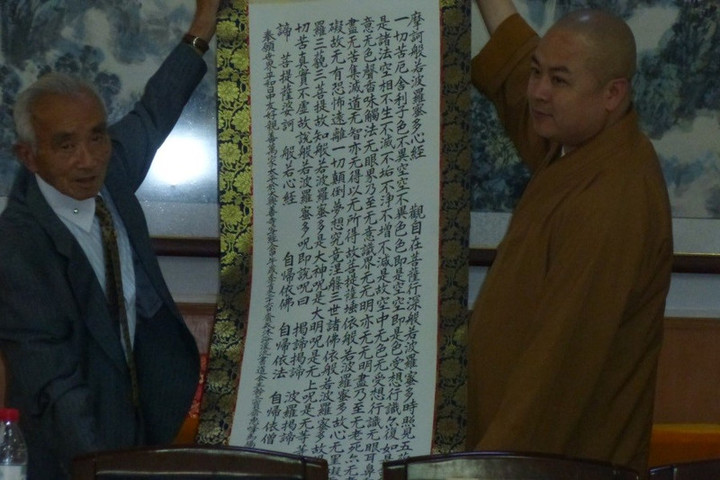 摩訶般若波羅蜜多心經 觀自在菩薩行深般若波羅蜜多時照見五
一切苦厄舍利子色不異空空不異色色即是空空即是色受想行識亦復如
是諸法空相不生不滅不垢不淨不增不減是故空中无色无受想行識无眼耳鼻
意无色聲香味觸法无眼界乃至无意識界无无明亦无无明盡乃至无老死亦无
盡无苦集滅道无智亦无得以无所得故菩提薩埵依般若波羅蜜多故心无罣
礙故无有恐怖遠離一切顛倒夢想究竟涅槃三世諸佛依般若波羅蜜多故
羅三藐三菩提故知般若波羅蜜多是大神呪是大明呪是无上呪是无等
切苦真實不虛故說般若波羅蜜多呪即說呪曰 揭諦揭諦 波羅揭諦
諦 菩提薩婆訶 般若心經 自帰依佛 自帰依法 自帰依僧
奉願世界平和日中友好親善